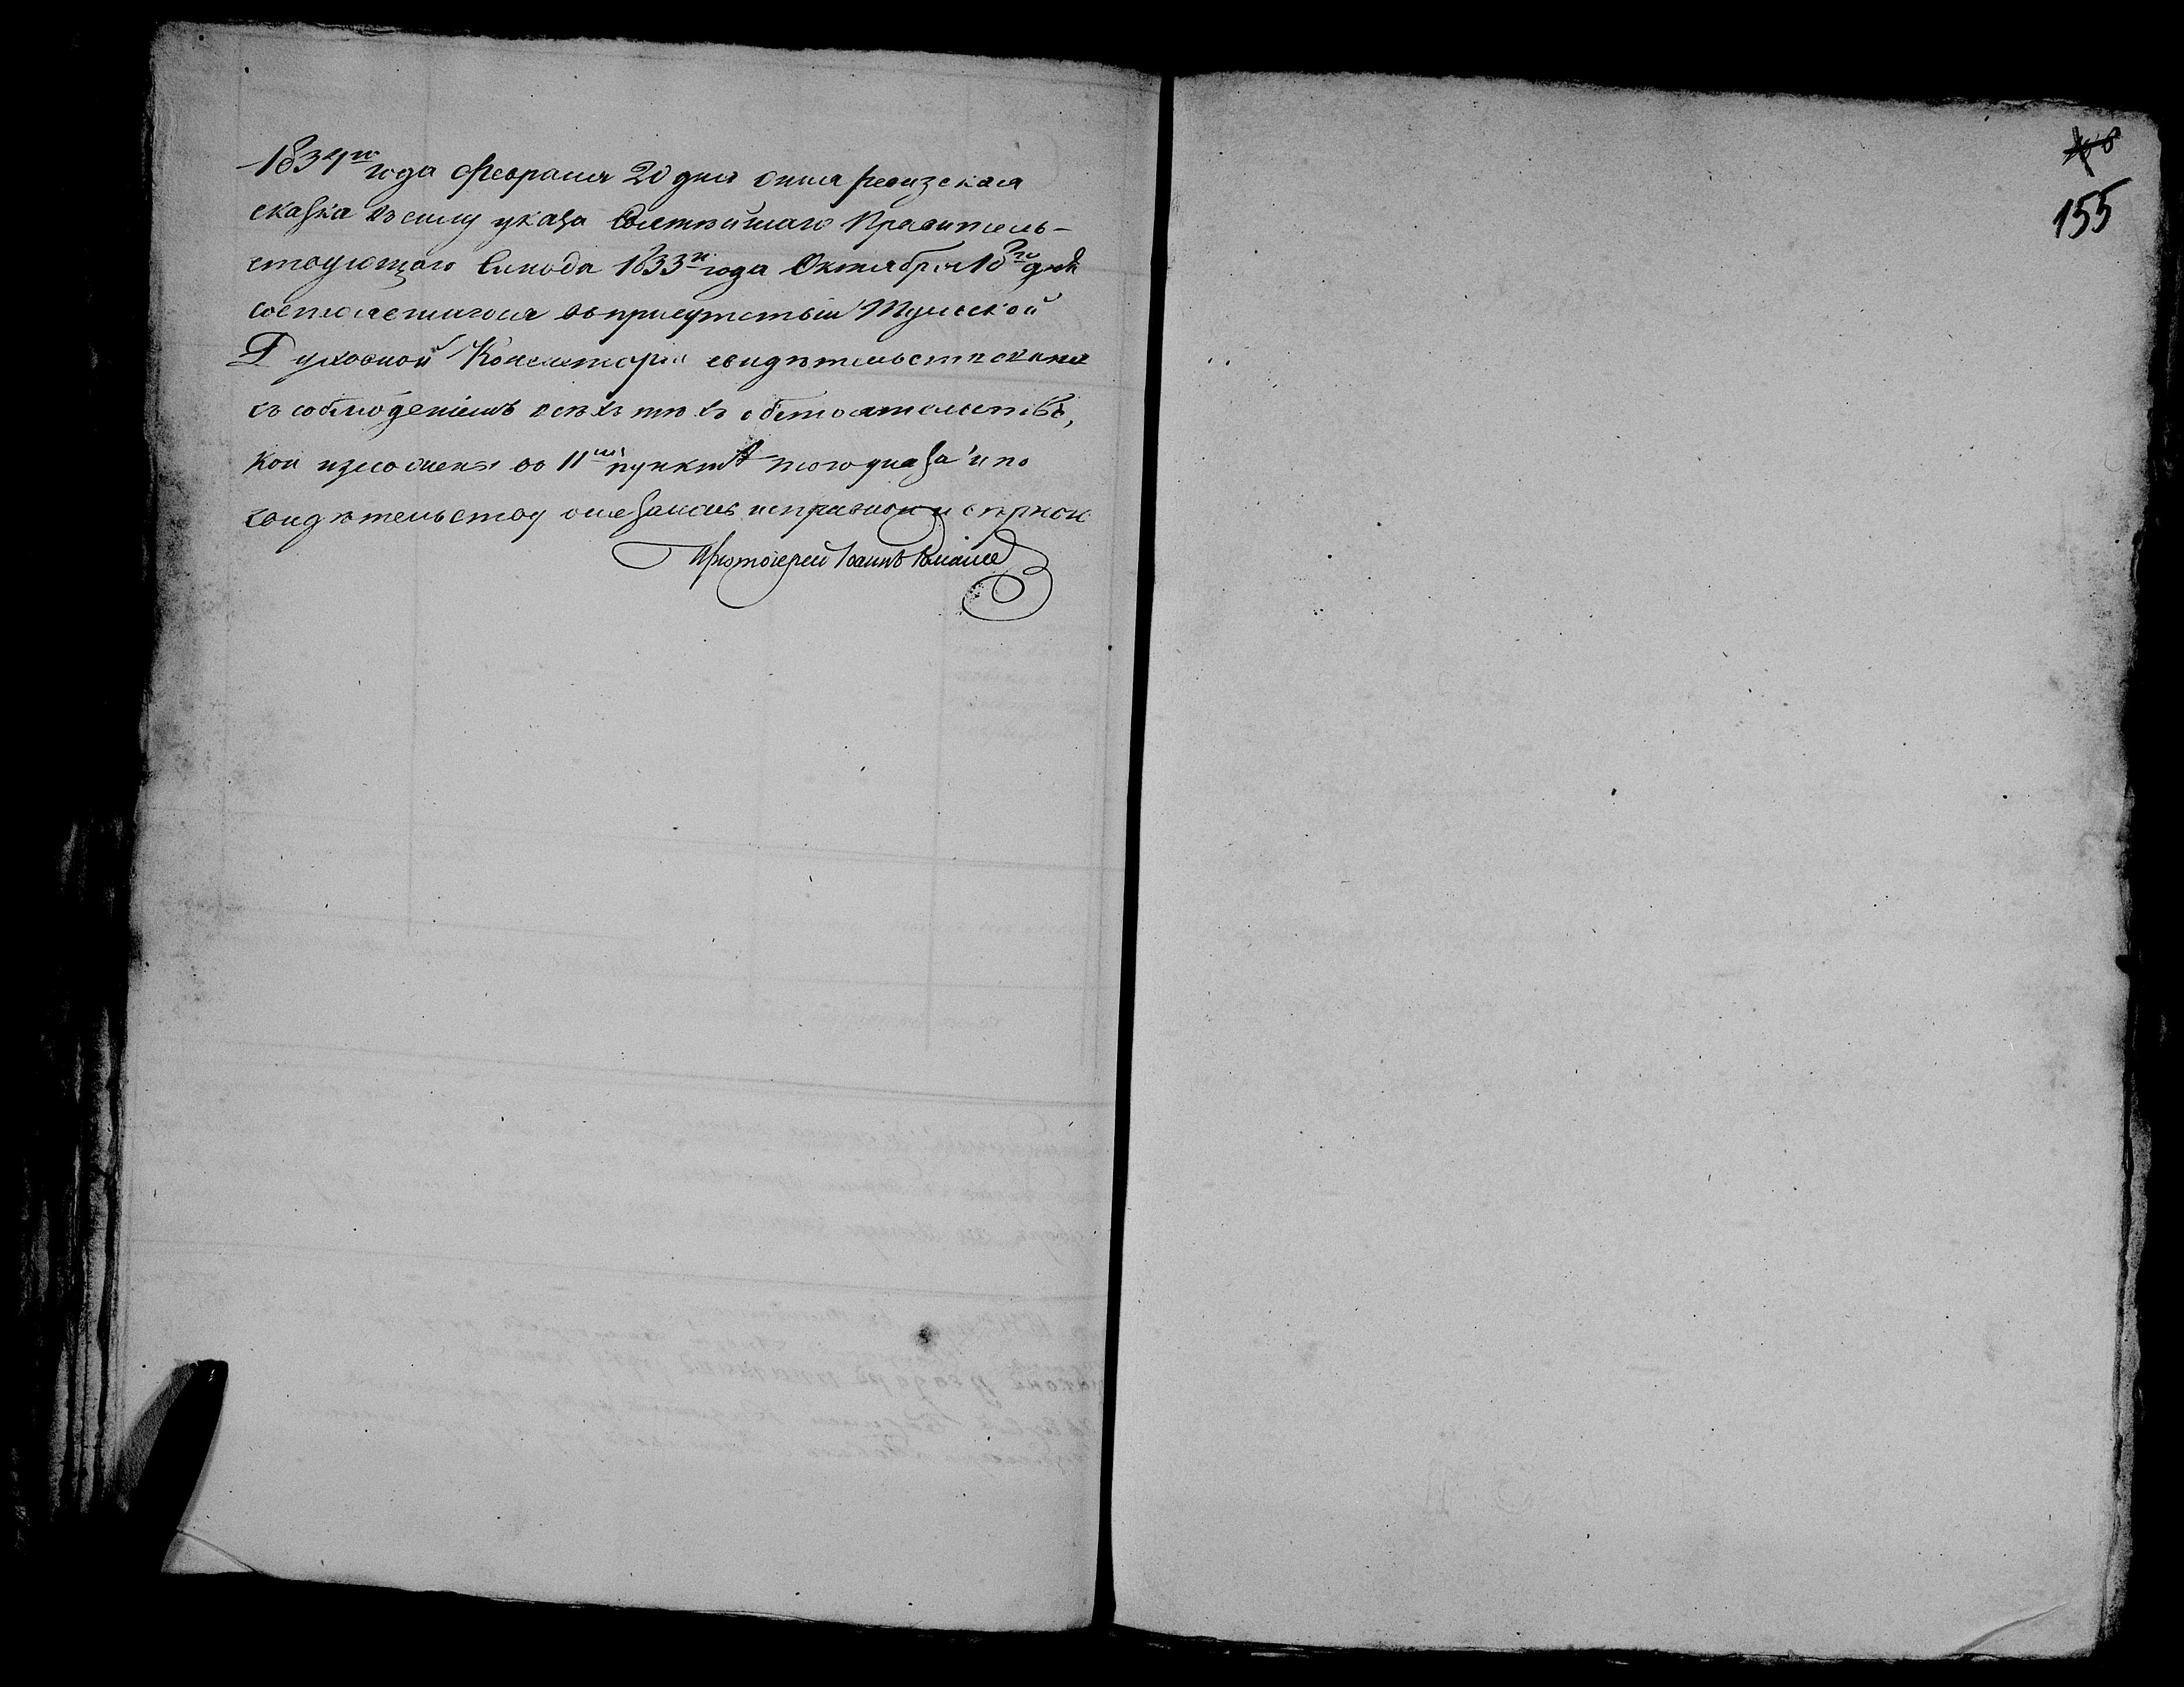 1834го года Февраля 20 дня сиия ревизская
сказка въ силу указа Святѣйшаго Правитель-
ствующаго Синода 1833го года Октября 18го дня
состоявшагося въ присутствіи Тульской
Духовной Консисторіи свидѣтельствована
съ соблюденіемъ всѣхъ тѣхъ обстоятельствъ,
кои изложены во 11мъ пунктѣ того указа и по
свидѣтельству оказалась исправною и вѣрною
Протоіерей Іоаннъ
155